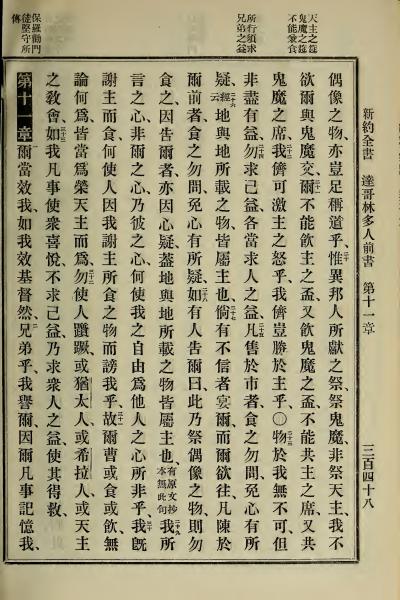 新約全書 達哥林多人前書 第十一章 三百四十八
天主之筵
鬼魔之筵
不能兼食
所行須求
兄弟之益
保羅勸門
徒堅守所
傳
偶像之物、亦豈足稱道乎、二十惟異邦人所獻之祭、祭鬼魔、非祭天主、我不
欲爾與鬼魔交、爾不能飲主之盃、又飲鬼魔之盃、不能共主之席、又共
鬼魔之席、我儕可激主之怒乎、我儕豈勝於主乎、○物於我無不可、但
非盡有益、勿求己益、各當求人之益、凡售於市者、食之勿問、免心有所
疑、二十六經云地與地所載之物、皆屬主也、倘有不信者宴爾、而爾欲往、凡陳於
爾前者、食之勿問、免心有所疑、如有人告爾曰、此乃祭偶像之物、則勿
食之、因告爾者、亦因心疑、蓋地與地所載之物皆屬主也、有原文抄本無此句二十九我所
言之心、非爾之心、乃彼之心、何使我之自由、為他人之心所非乎、三十我既
謝主而食、何使人因我謝主所食之物而謗我乎、三十一故爾曹或食或飲、無
論何為、皆當為榮天主而為、勿使人躓蹶、或猶太人、或希拉人、或天主
之敎會、三十三如我凡事使衆喜悅、不求己益、乃求衆人之益、使其得救、
第十一章 一爾當效我、如我效基督然、二兄弟乎、我譽爾、因爾凡事記憶我、